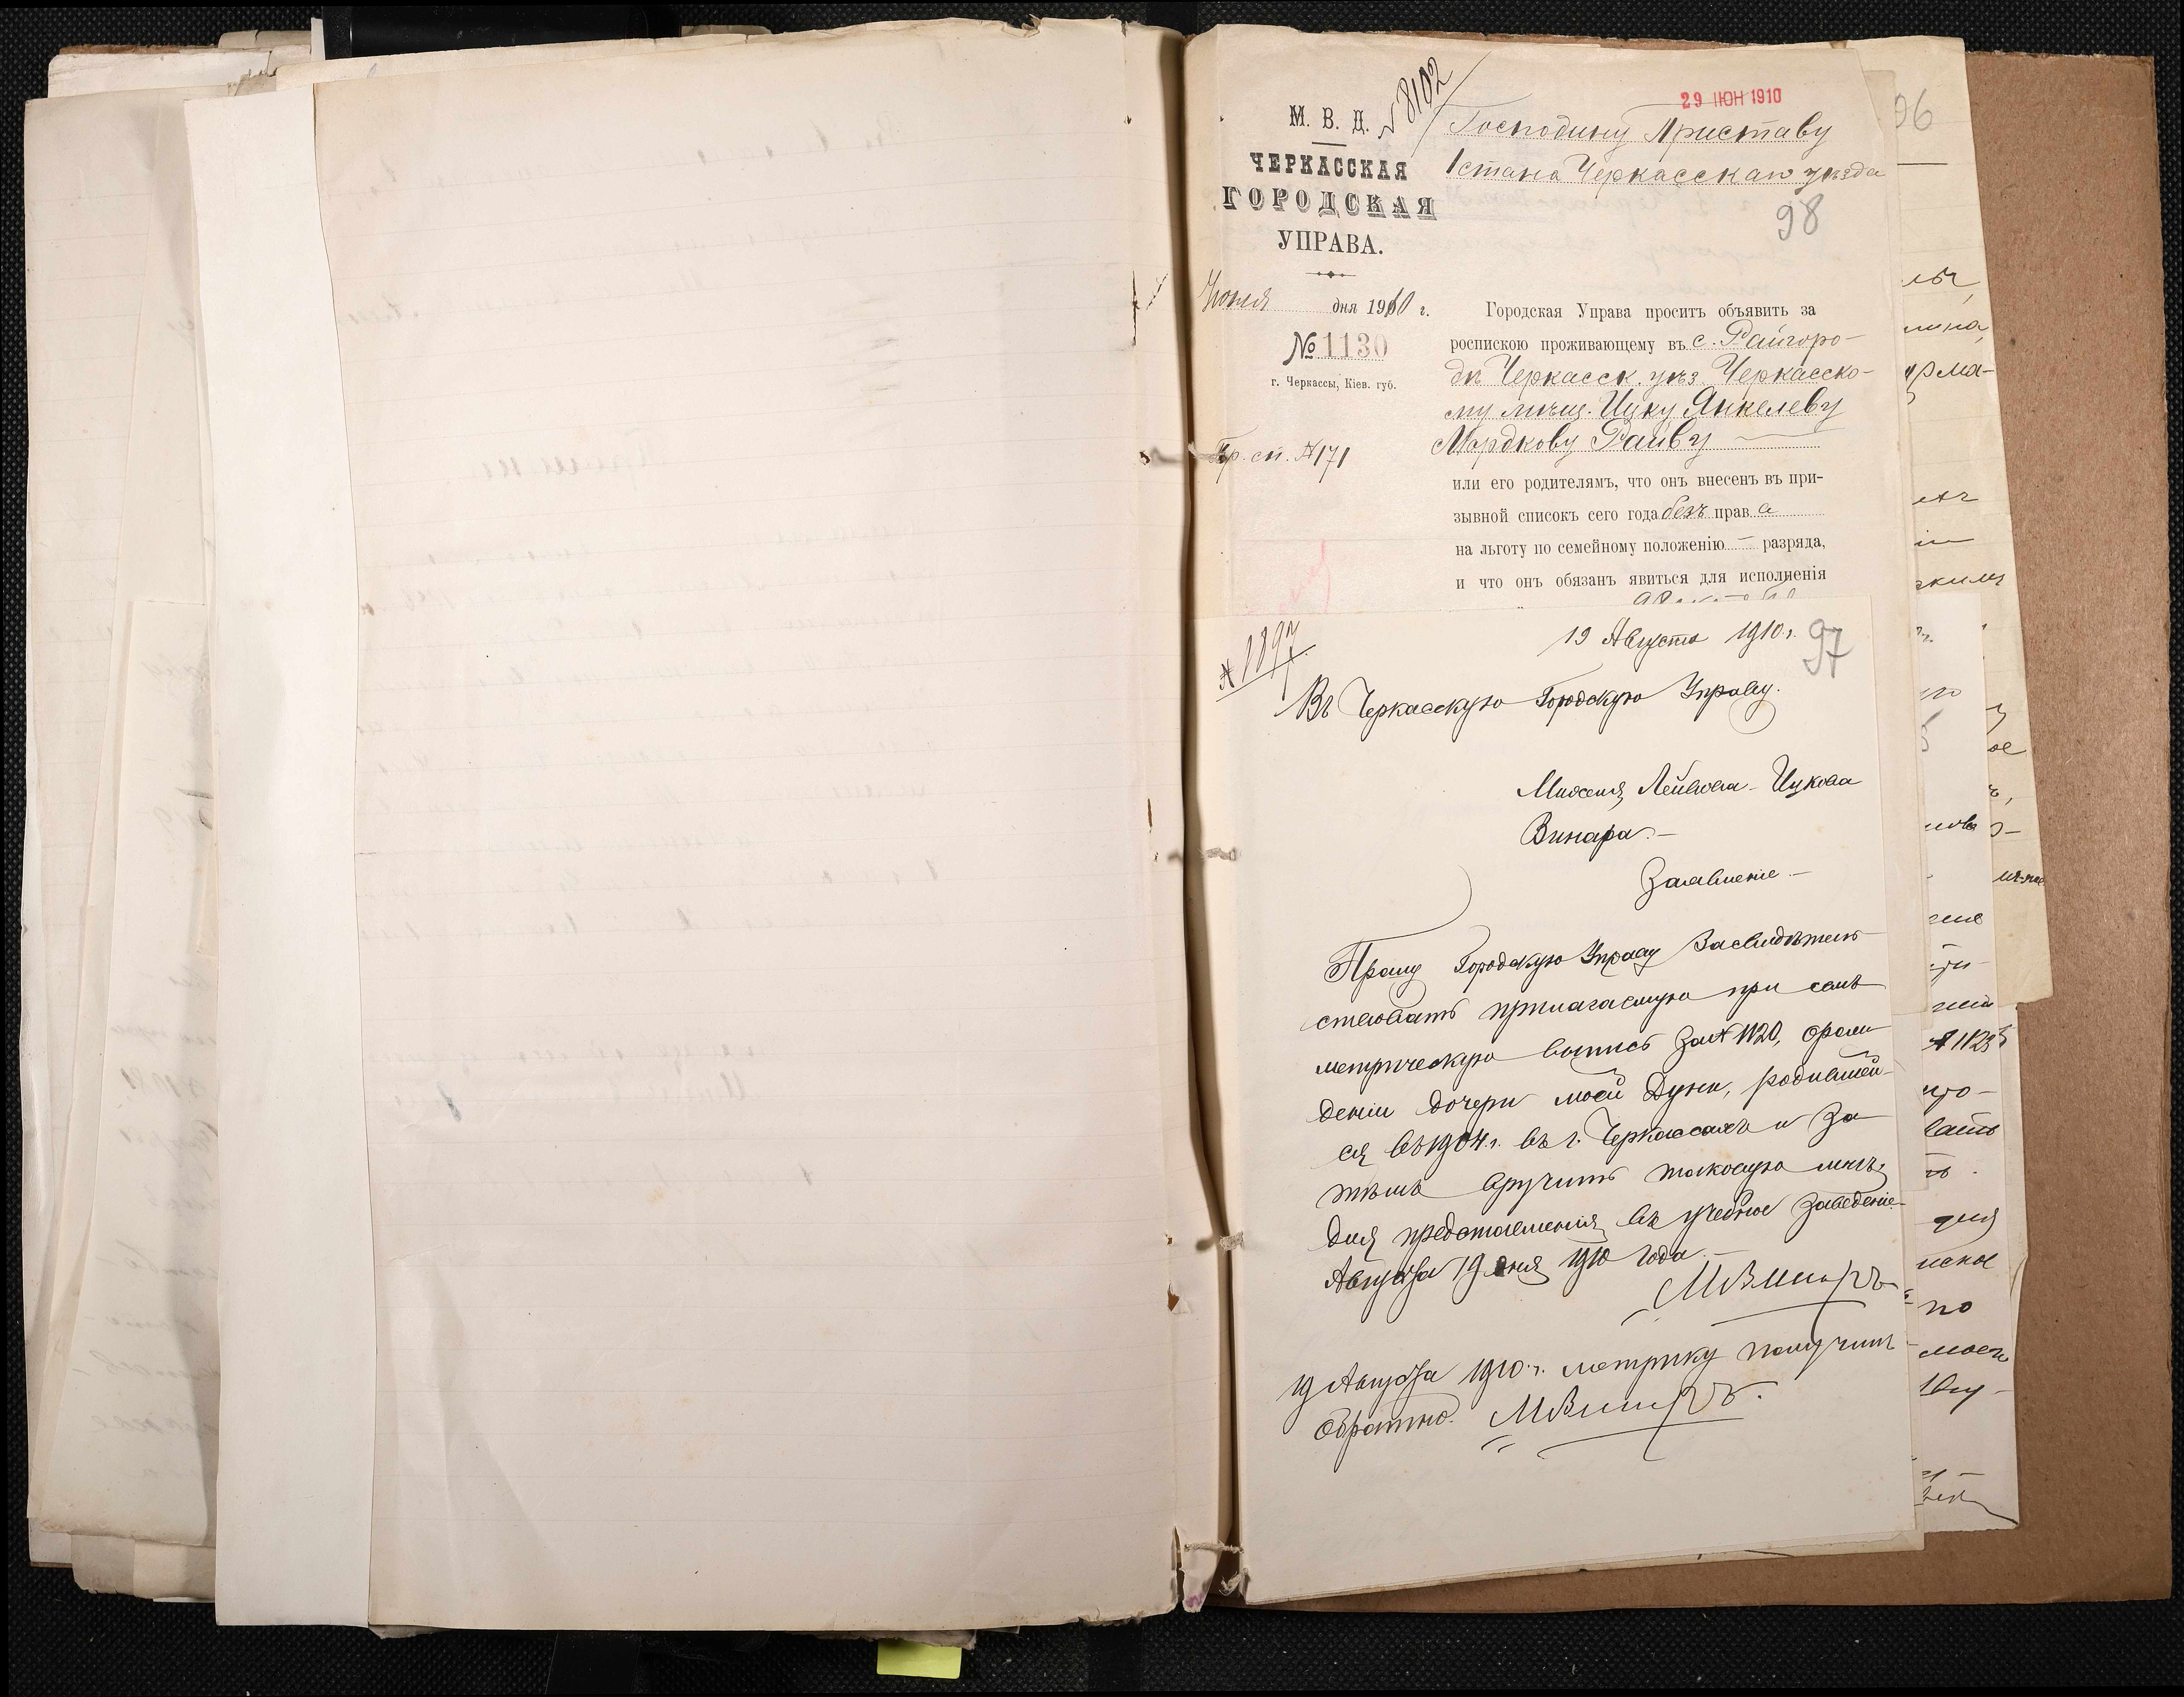 29 IЮН 1910
№ 8102
М. В. Д.
ЧЕРКАССКАЯ
ГОРОДСКАЯ
УПРАВА.
Господину Приставу
1 стана Черкасскаго уѣзда
98
Іюня дня 1910 г.
№ 1130
г. Черкассы, Кіев. губ.
Пр. сп. № 171
Городская Управа проситъ объявить за
роспискою проживающему въ с. Райгоро-
дѣ Черкасск. уѣз. Черкасско-
му мѣщ. Ицку Янкелеву
Мордкову Райву
или его родителямъ, что онъ внесенъ въ при-
зывной списокъ сего года безъ права
на льготу по семейному положенію — разряда,
и что онъ обязанъ явиться для исполненія
19 Августа 1910 г.
97
№ 1897
Въ Черкасскую Городскую Управу.
Лейбова-Ицкова
Винара.—
Заявленіе.—
Прошу Городскую Управу Засвидѣтель
ствовать прилагаемую при семъ
метрическую выпись за № 1120, о рож
деніи дочери моей Дуни, родившей-
ся въ 1904 г. въ г. Черкассахъ и За
тѣмъ вручить таковую мнѣ,
для представленія въ учебное Заведеніе.
Августа 19 дня 1910 года.—
МВинаръ
19 Августа 1910 г. метрику получилъ
обратно. МВинаръ.
96
№ 1123